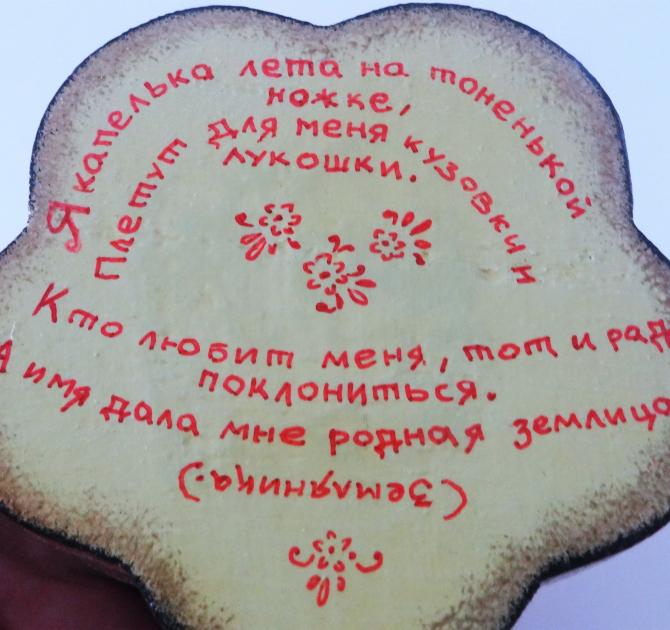 Я капелька лета на тоненькой
ножке,
Плетут для меня кузовки и
лукошки.
Кто любит меня, тот и рад
поклониться.
А имя дала мне родная землица
(Земляника.)